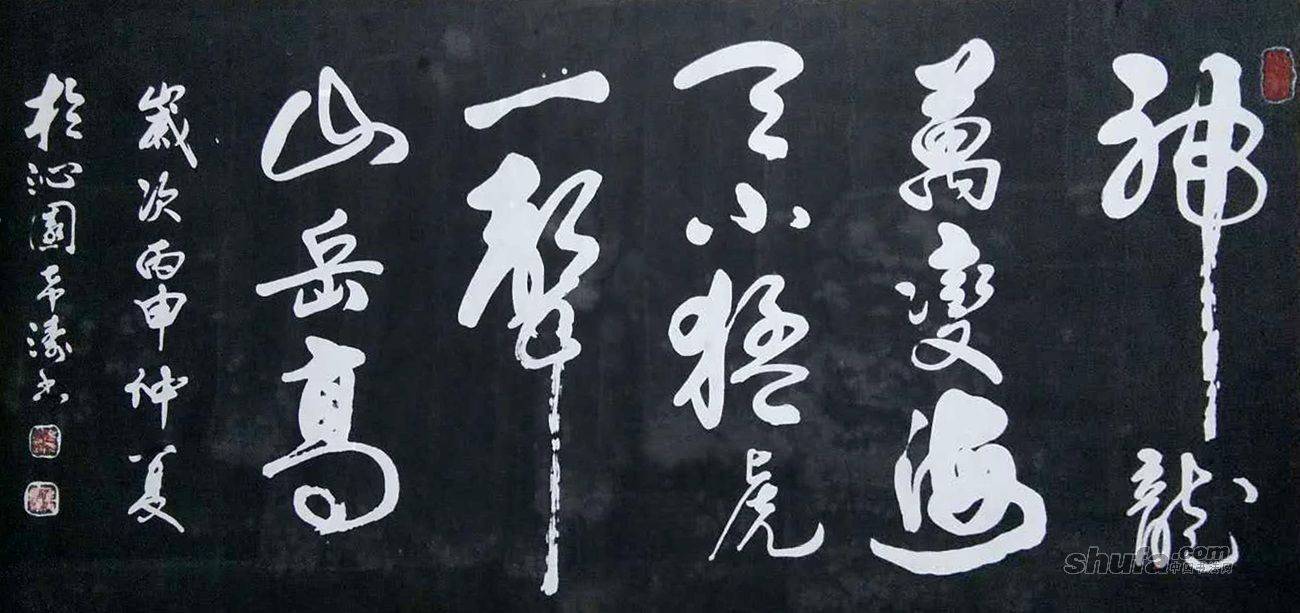 神龍
萬變海
天小猛虎
一聲
山岳高
歲次丙申仲夏
於沁園希濤書
shufa.com
中国书法网